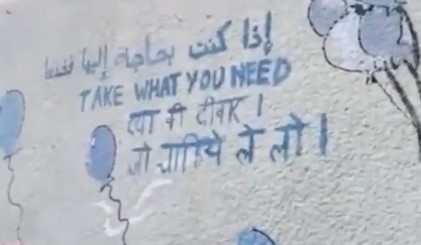 إذا كنت بحاجة إليها فخذها
TAKE WHAT YOU NEED
दया की दीवार ।
जो चाहिये ले लो ।